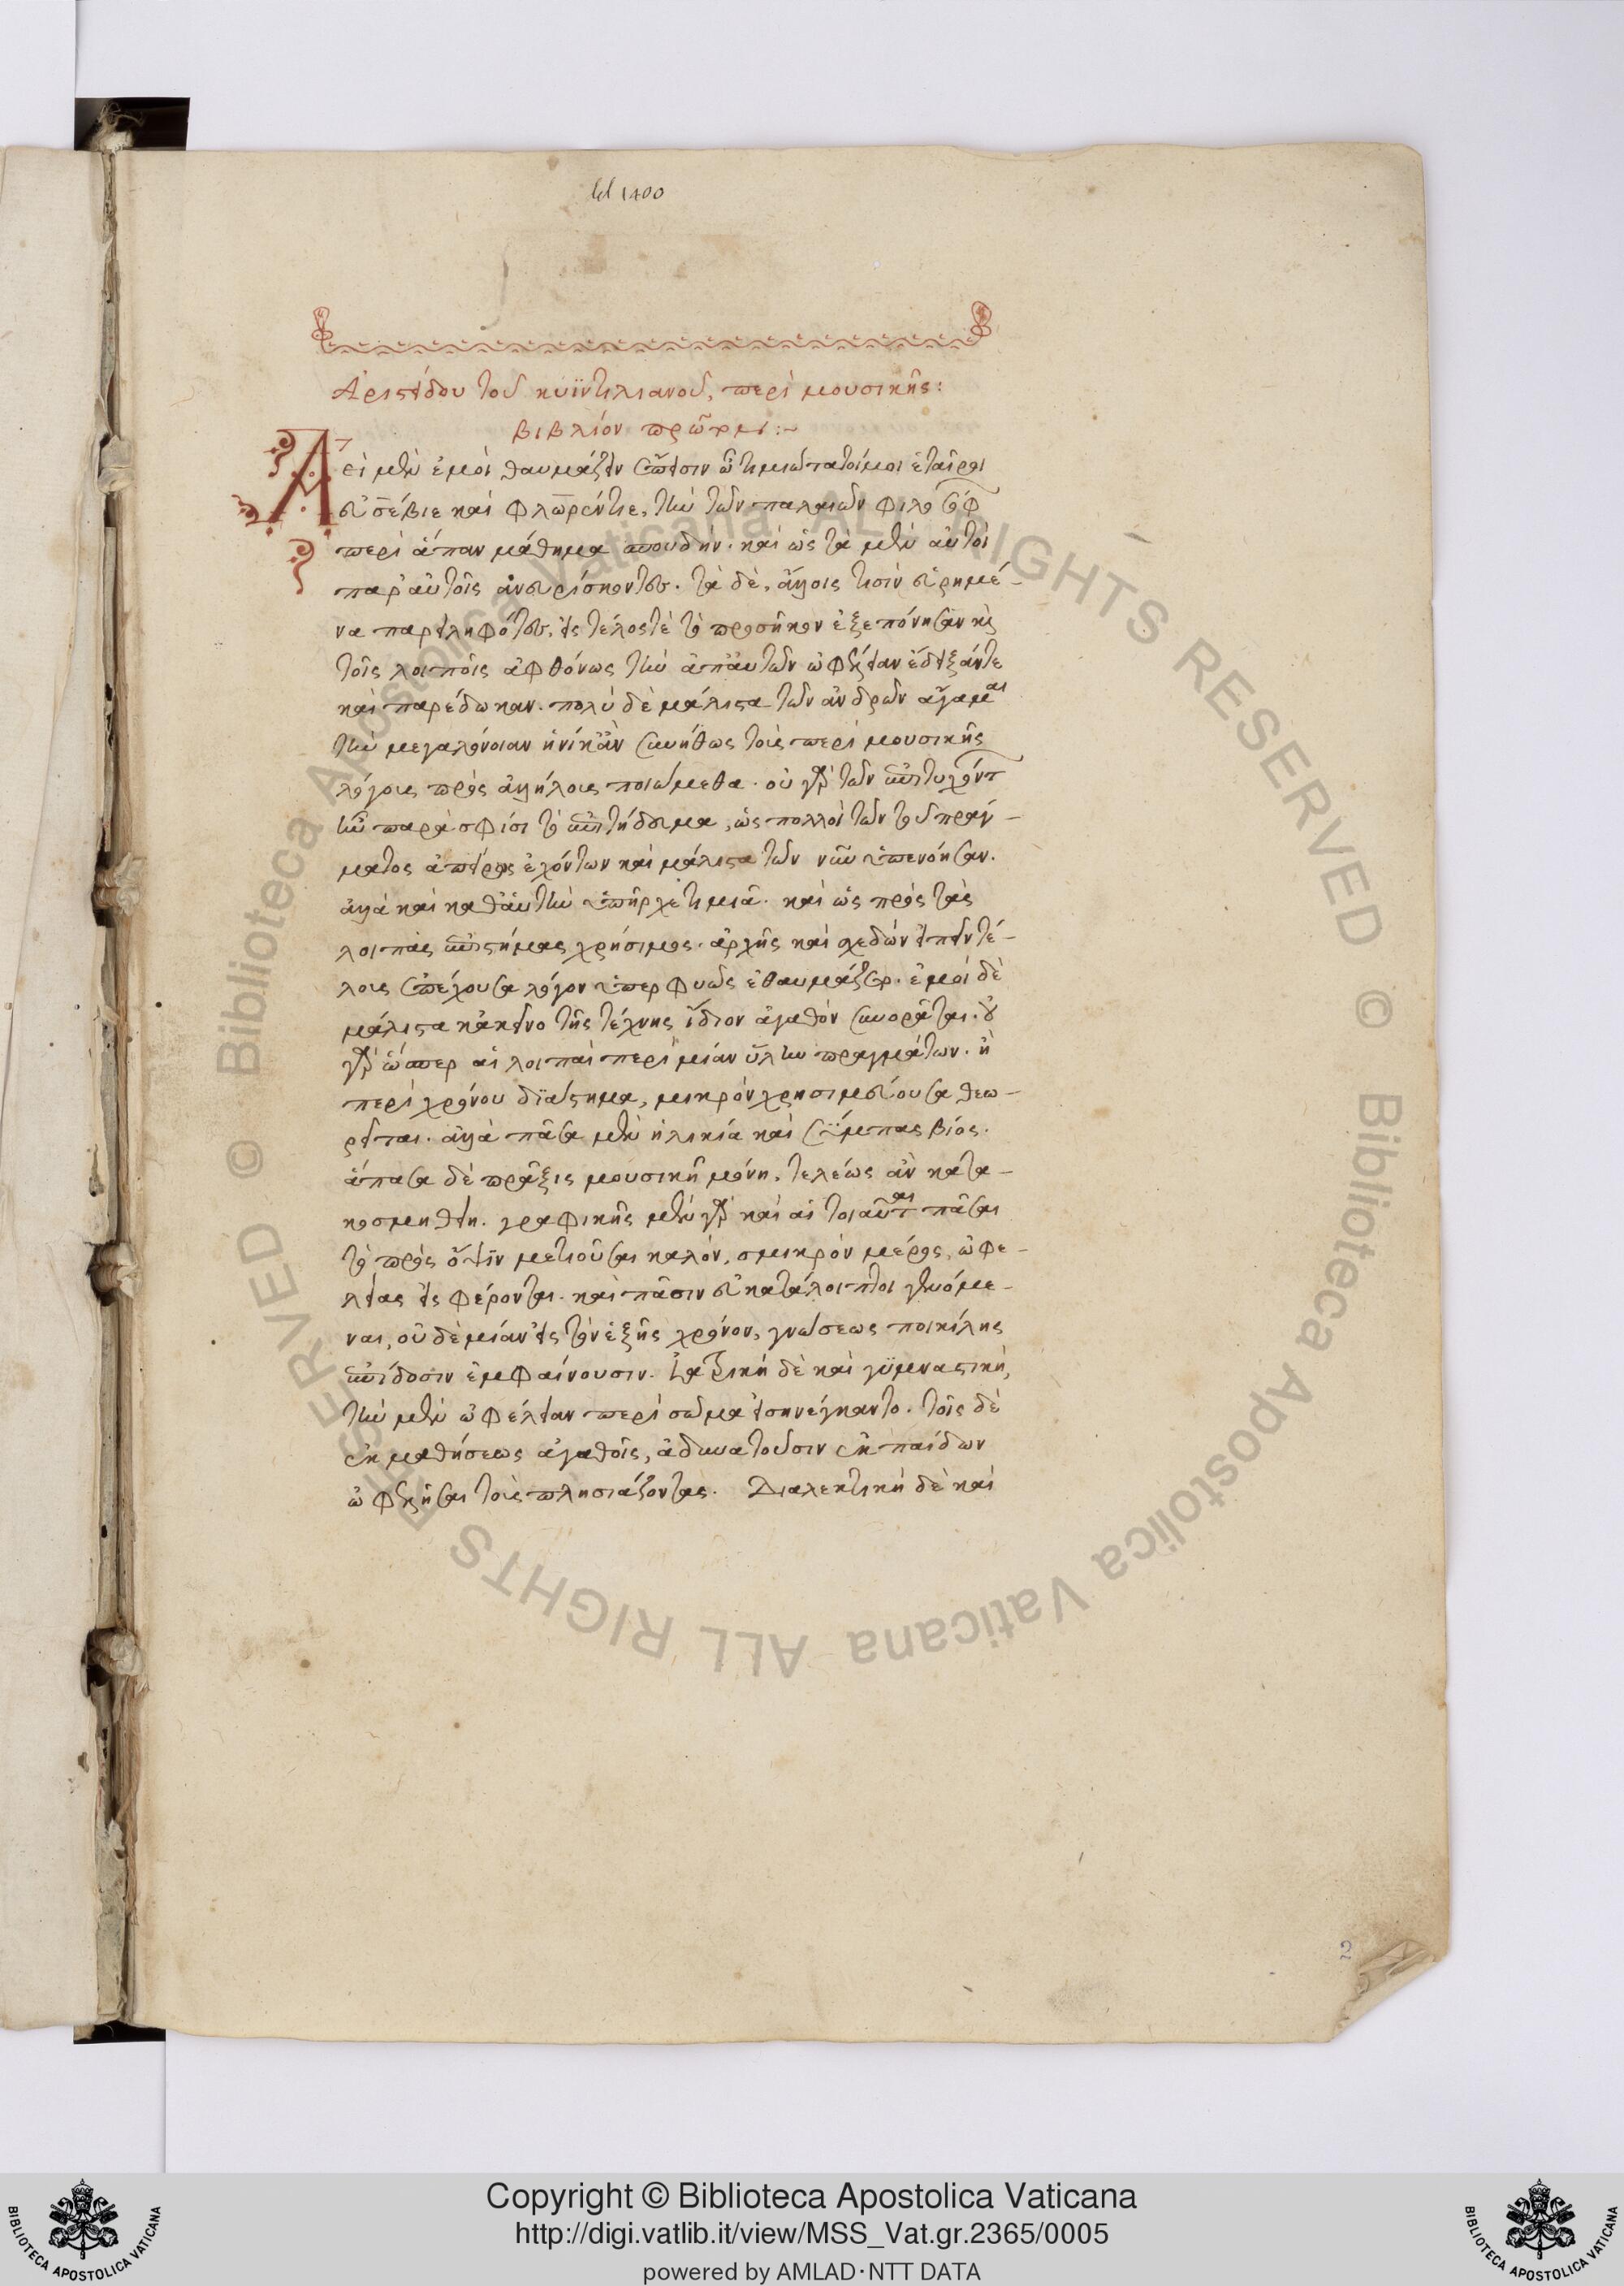 Ἀριστείδου τοῦ κυϊντιλιανοῦ, περὶ μουσικῆς:
βιβλίον πρῶτον:~
Ἀεὶ μὲν ἐμοὶ θαυμάζειν ἔπεισιν ὦ τιμιώτατοί μοι ἑταῖροι
εὐσέβιε καὶ φλωρέντιε, τὴν τῶν παλαιῶν φιλοσόφ
περὶ ἅπαν μάθημα σπουδήν. καὶ ὡς τὰ μὲν αὐτοὶ
παρ' αὐτοῖς ἀνευρίσκοντες. τὰ δὲ, ἄλλοις τισὶν εὑρημέ-
να παρειληφότες, εἰς τέλος τὲ τὸ προσῆκον ἐξεπόνησαν κὶ
τοῖς λοιποῖς ἀφθόνως τὴν ἀπ' αὐτῶν ὠφέλειαν ἔδειξάν τε
καὶ παρέδωκαν. πολὺ δὲ μάλιστα τῶν ἀνδρῶν ἄγαμαι
τὴν μεγαλόνοιαν ἡνίκ' ἂν συνήθως τοὺς περὶ μουσικῆς
λόγους πρὸς ἀλλήλους ποιώμεθα. οὐ γὰρ τῶν ἐπιτυχόντ
ἦν παρὰ σφίσι τὸ ἐπιτήδευμα, ὡς πολλοὶ τῶν τοῦ πράγ-
ματος ἀπείρως ἐχόντων καὶ μάλιστα τῶν νῦν ὑπενόησαν.
ἀλλὰ καὶ καθ' αὑτὴν ὑπῆρχε τιμία. καὶ ὡς πρὸς τὰς
λοιπὰς ἐπιστήμας χρήσιμος. ἀρχῆς καὶ σχεδὸν εἰπεῖν τέ-
λους ἐπέχουσα λόγον ὑπερφυῶς ἐθαυμάζετο. ἐμοὶ δὲ
μάλιστα κἀκεῖνο τῆς τέχνης ἴδιον ἀγαθὸν ἐνορᾶται. οὐ
γὰρ ὥσπερ αἱ λοιπαὶ περὶ μίαν ὕλην πραγμάτων. ἢ
περὶ χρόνου διάστημα, μικρὸν χρησιμεύουσα θεω-
ρεῖται. ἀλλὰ πᾶσα μὲν ἡλικία καὶ σύμπας βίος.
ἅπασα δὲ πρᾶξις μουσικῇ μόνῃ, τελέως ἂν κατα-
κοσμηθείη. γραφικῆς μὲν γὰρ καὶ αἱ τοιαῦται πᾶσαι
τὸ πρὸς ὄψιν μετιοῦσαι καλόν, σμικρὸν μέρος, ὠφε-
λείας εἰσφέρονται. καὶ πᾶσιν εὐκατάλοιποι γενόμε-
ναι, οὐδεμίαν εἰς τὸν ἑξῆς χρόνον, γνώσεως ποικίλης
ἐπίδοσιν ἐμφαίνουσιν. ἰατρικὴ δὲ καὶ γυμναστικὴ,
τὴν μὲν ὠφέλειαν περὶ σῶμα εἰσηνέγκαντο. τοῖς δὲ
ἐκ μαθήσεως ἀγαθοῖς, ἀδυνατοῦσιν ἐκ παίδων
ὠφελῆσαι τοὺς πλησιάζοντας. Διαλεκτικὴ δὲ καὶ
2
Copyright © Biblioteca Apostolica Vaticana
http://digi.vatlib.it/view/MSS_Vat.gr.2365/0005
powered by AMLAD·NTT DATA